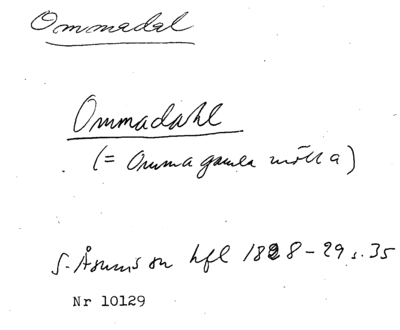 Ommadal
Ommadahl
(= Onuma gamla mölla)
S. Åsums sn hfl 1828-29 s. 35
Nr 10129